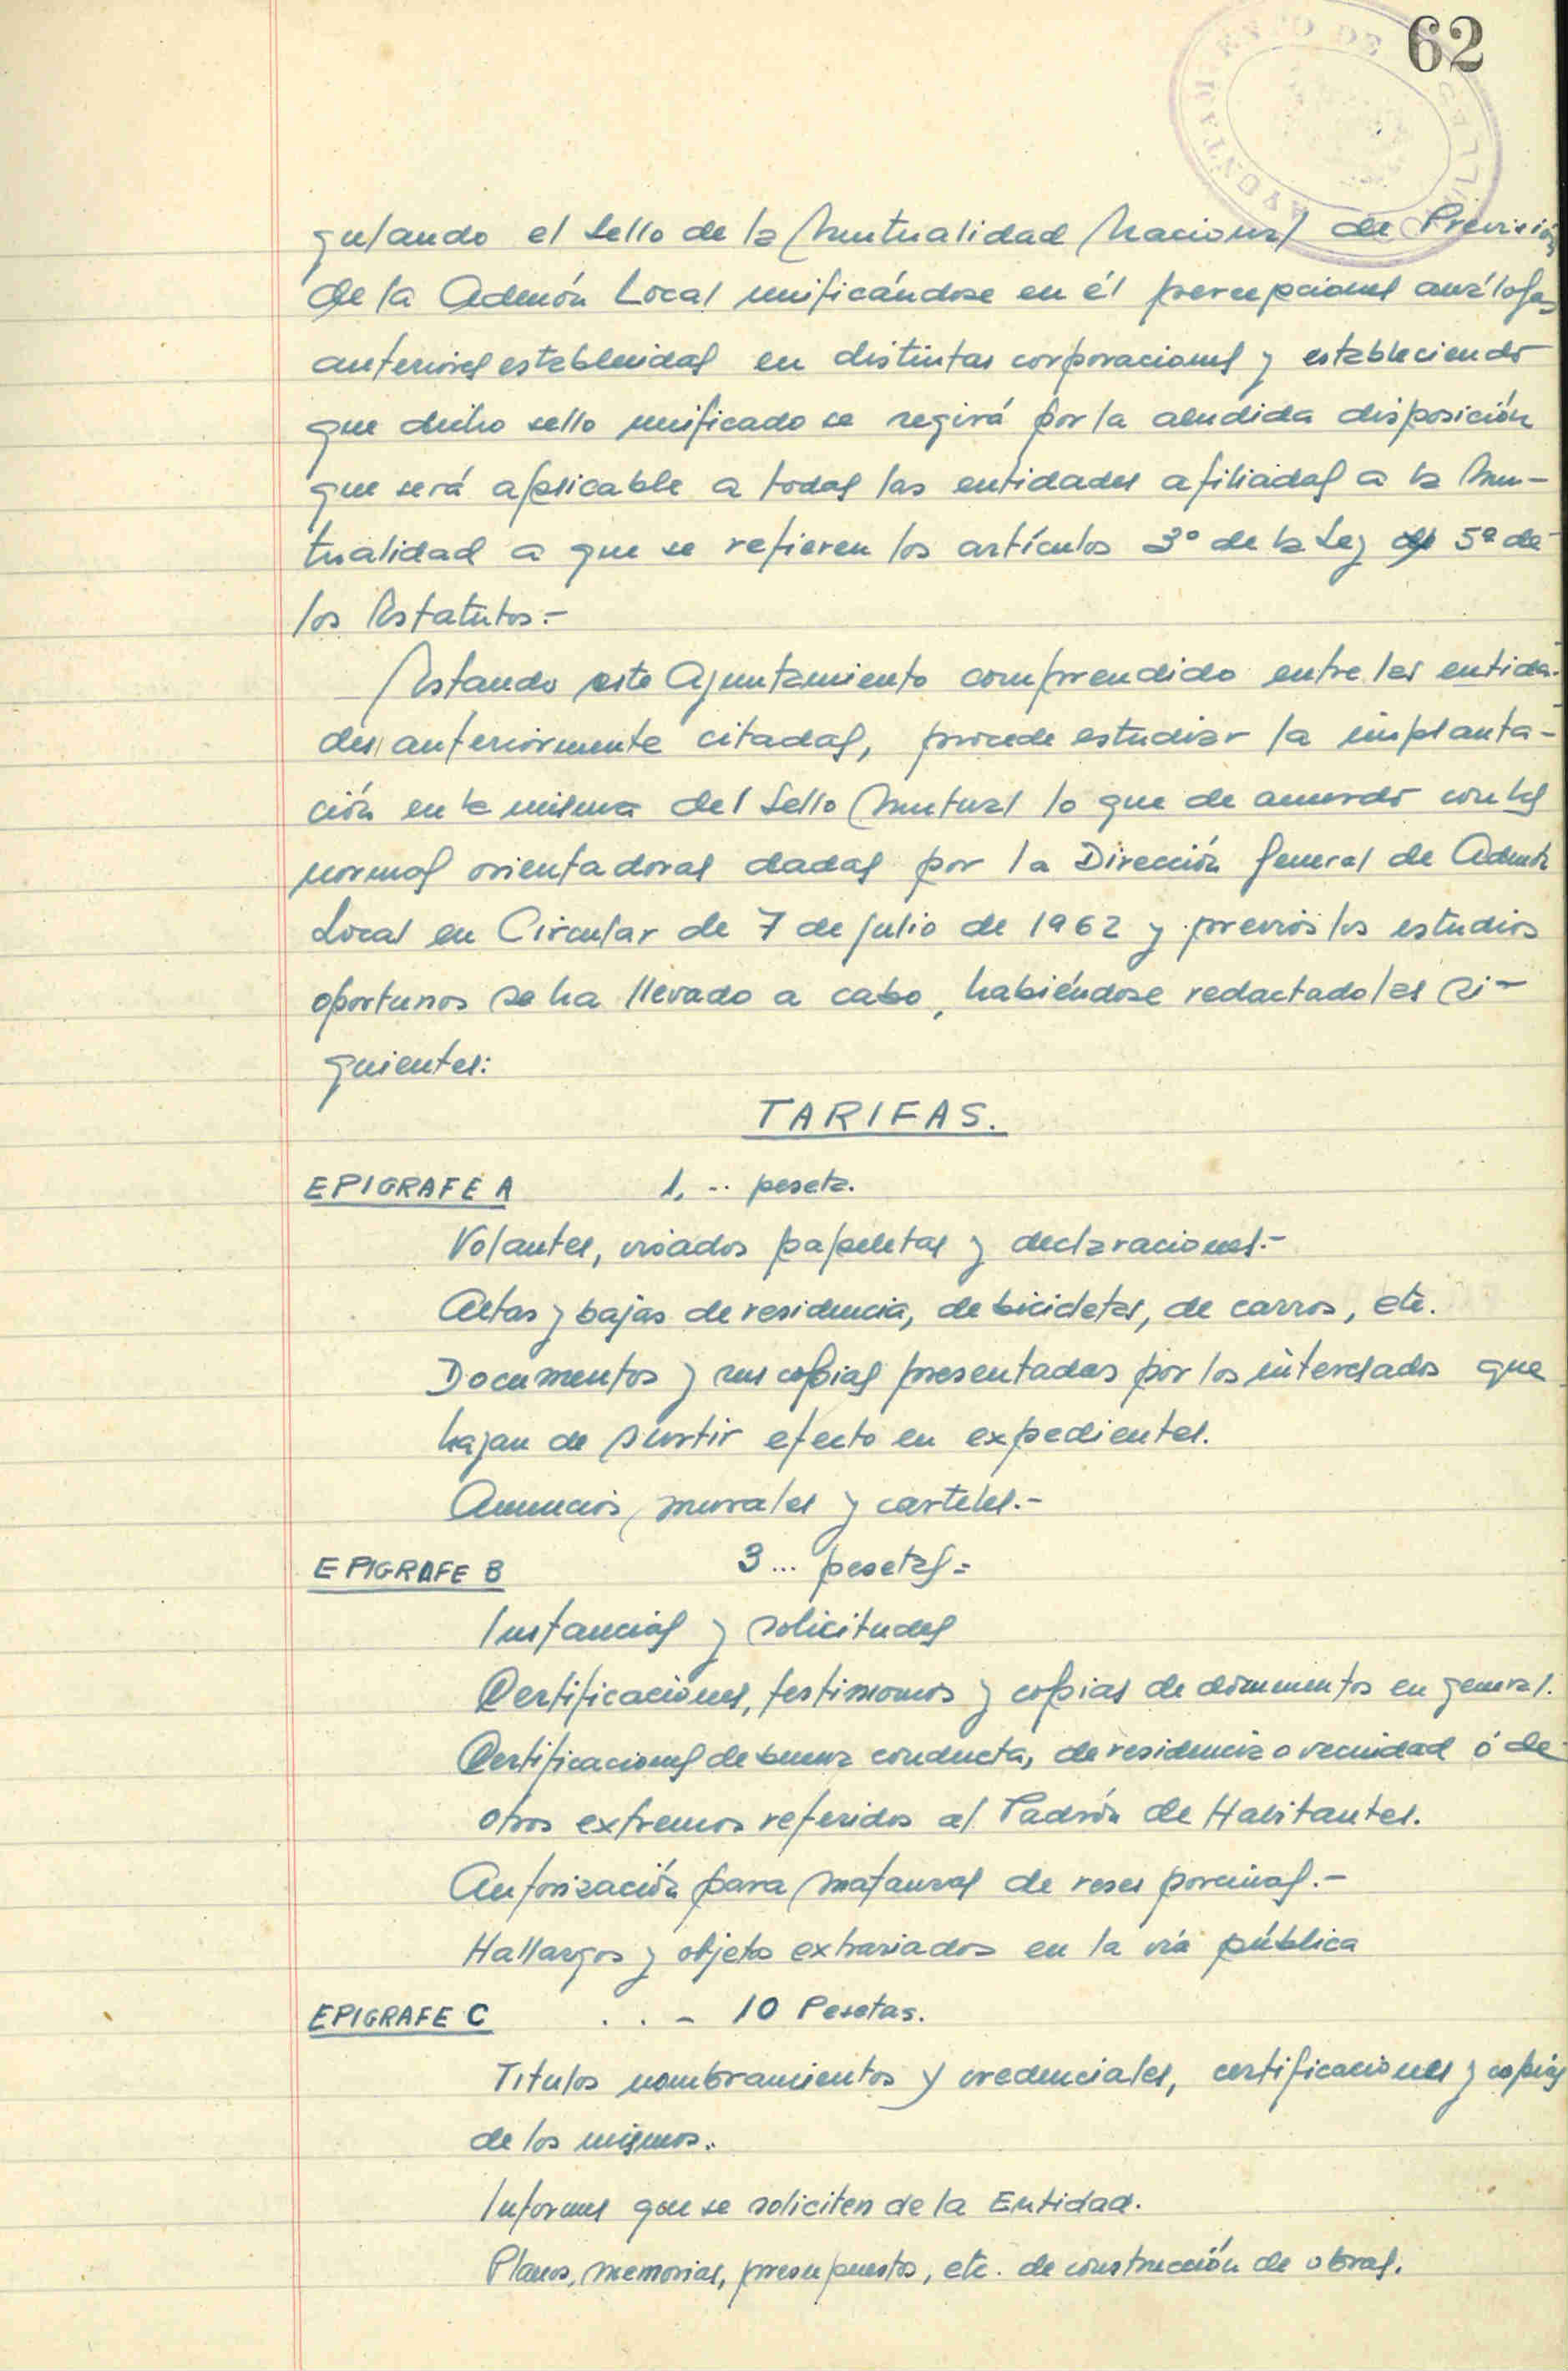 62
AYUNTAMIENTO DE
gulando el Sello de la Mutualidad Nacional de Previsión
de la Admón Local unificándose en él percepciones análogas
anteriores establecidas en distintas corporaciones y estableciendo
que dicho sello unificado se regirá por la aludida disposición
que será aplicable a todas las entidades afiliadas a la Mu-
tualidad a que se refieren los artículos 3º de la Ley 5º de
los Estatutos.-
Estando este Ayuntamiento comprendido entre las entida-
des anteriormente citadas, procede estudiar la implanta-
ción en la misma del Sello Mutual lo que de acuerdo con las
normas orientadoras dadas por la Dirección General de Admón
Local en Circular de 7 de julio de 1962 y previos los estudios
oportunos se ha llevado a cabo, habiéndose redactado las si-
guientes:
TARIFAS.
EPIGRAFE A 1, -- peseta.
Volantes, visados papeletas y declaraciones.-
Altas y bajas de residencia, de bicicletas, de carros, etc.
Documentos y sus copias presentadas por los interesados que
hayan de surtir efecto en expedientes.
Anuncios, murales y carteles.-
EPIGRAFE B 3 ... pesetas=
Instancias y solicitudes
Certificaciones, testimonios y copias de documentos en general.
Certificaciones de buena conducta, de residencia o vecindad ó de
otros extremos referidos al Padrón de Habitantes.
Autorización para matanzas de reses porcinas.-
Hallazgos y objetos extraviados en la vía pública
EPIGRAFE C . . - 10 Pesetas.
Titulos nombramientos y credenciales, certificaciones y copias
de los mismos.
Informes que se soliciten de la Entidad.
Planos, memorias, presupuestos, etc. de construcción de obras.